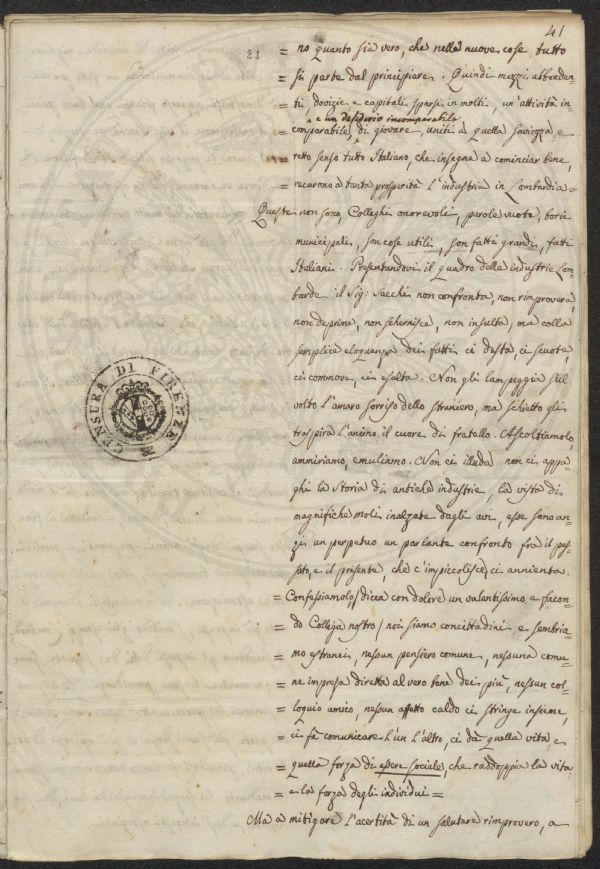 41
21
= no quanto sia vero, che nelle nuove cose tutto
= si parte dal principiare. Quindi mezzi abbondan
= ti dovizie e capitali sparsi in molti, un'attività in=
e un desiderio incomparabile
= comparabile, di giovare, uniti à quella saviezza e
= retto senso tutto Italiano, che insegna a cominciar bene,
= recarono a tanta prosperità l'industria in Lombardia =
Queste non sono, Colleghi onorevoli, parole vuote, borie
municipali, son cose utili, son fatti grandi, fatti
Italiani. Presentandovi il quadro delle industrie Lom
barde il Sig: Sacchi non confronta, non rimprovera,
non deprime, non schernisce, non insulta; ma colla
semplice eloquenza dei fatti ci desta, ci scuote,
ci commove, ci esalta. Non gli lampeggia sul
volto l'amaro sorriso dello straniero, ma schietto gli
traspira l'animo il cuore di fratello. Ascoltiamolo,
ammiriamo, emuliamo. Non ci illuda non ci appa=
ghi la storia di antiche industrie, la vista di
magnifiche moli inalzate dagli avi, esse sono an=
zi un perpetuo un parlante confronto frà il pas=
sato, e il presente, che c'impiccolisce, ci annienta.
= Confessiamolo, / dicea con dolore un valentissimo e facon=
= do Collega nostro / noi siamo concittadini e sembria=
= mo estranei, nessun pensiero comune, nessuna comu=
= ne impresa diretta al vero bene dei più, nessun col=
= loquio amico, nessun affetto caldo ci stringe insieme,
= ci fà comunicare l'un l'altro, ci dà quella vita, e
= quella forza di essere sociale, che raddoppia la vita
= e la forza degli individui =
Ma a mitigare l'acerbità di un salutare rimprovero, a
CENSURA DI FIRENZE